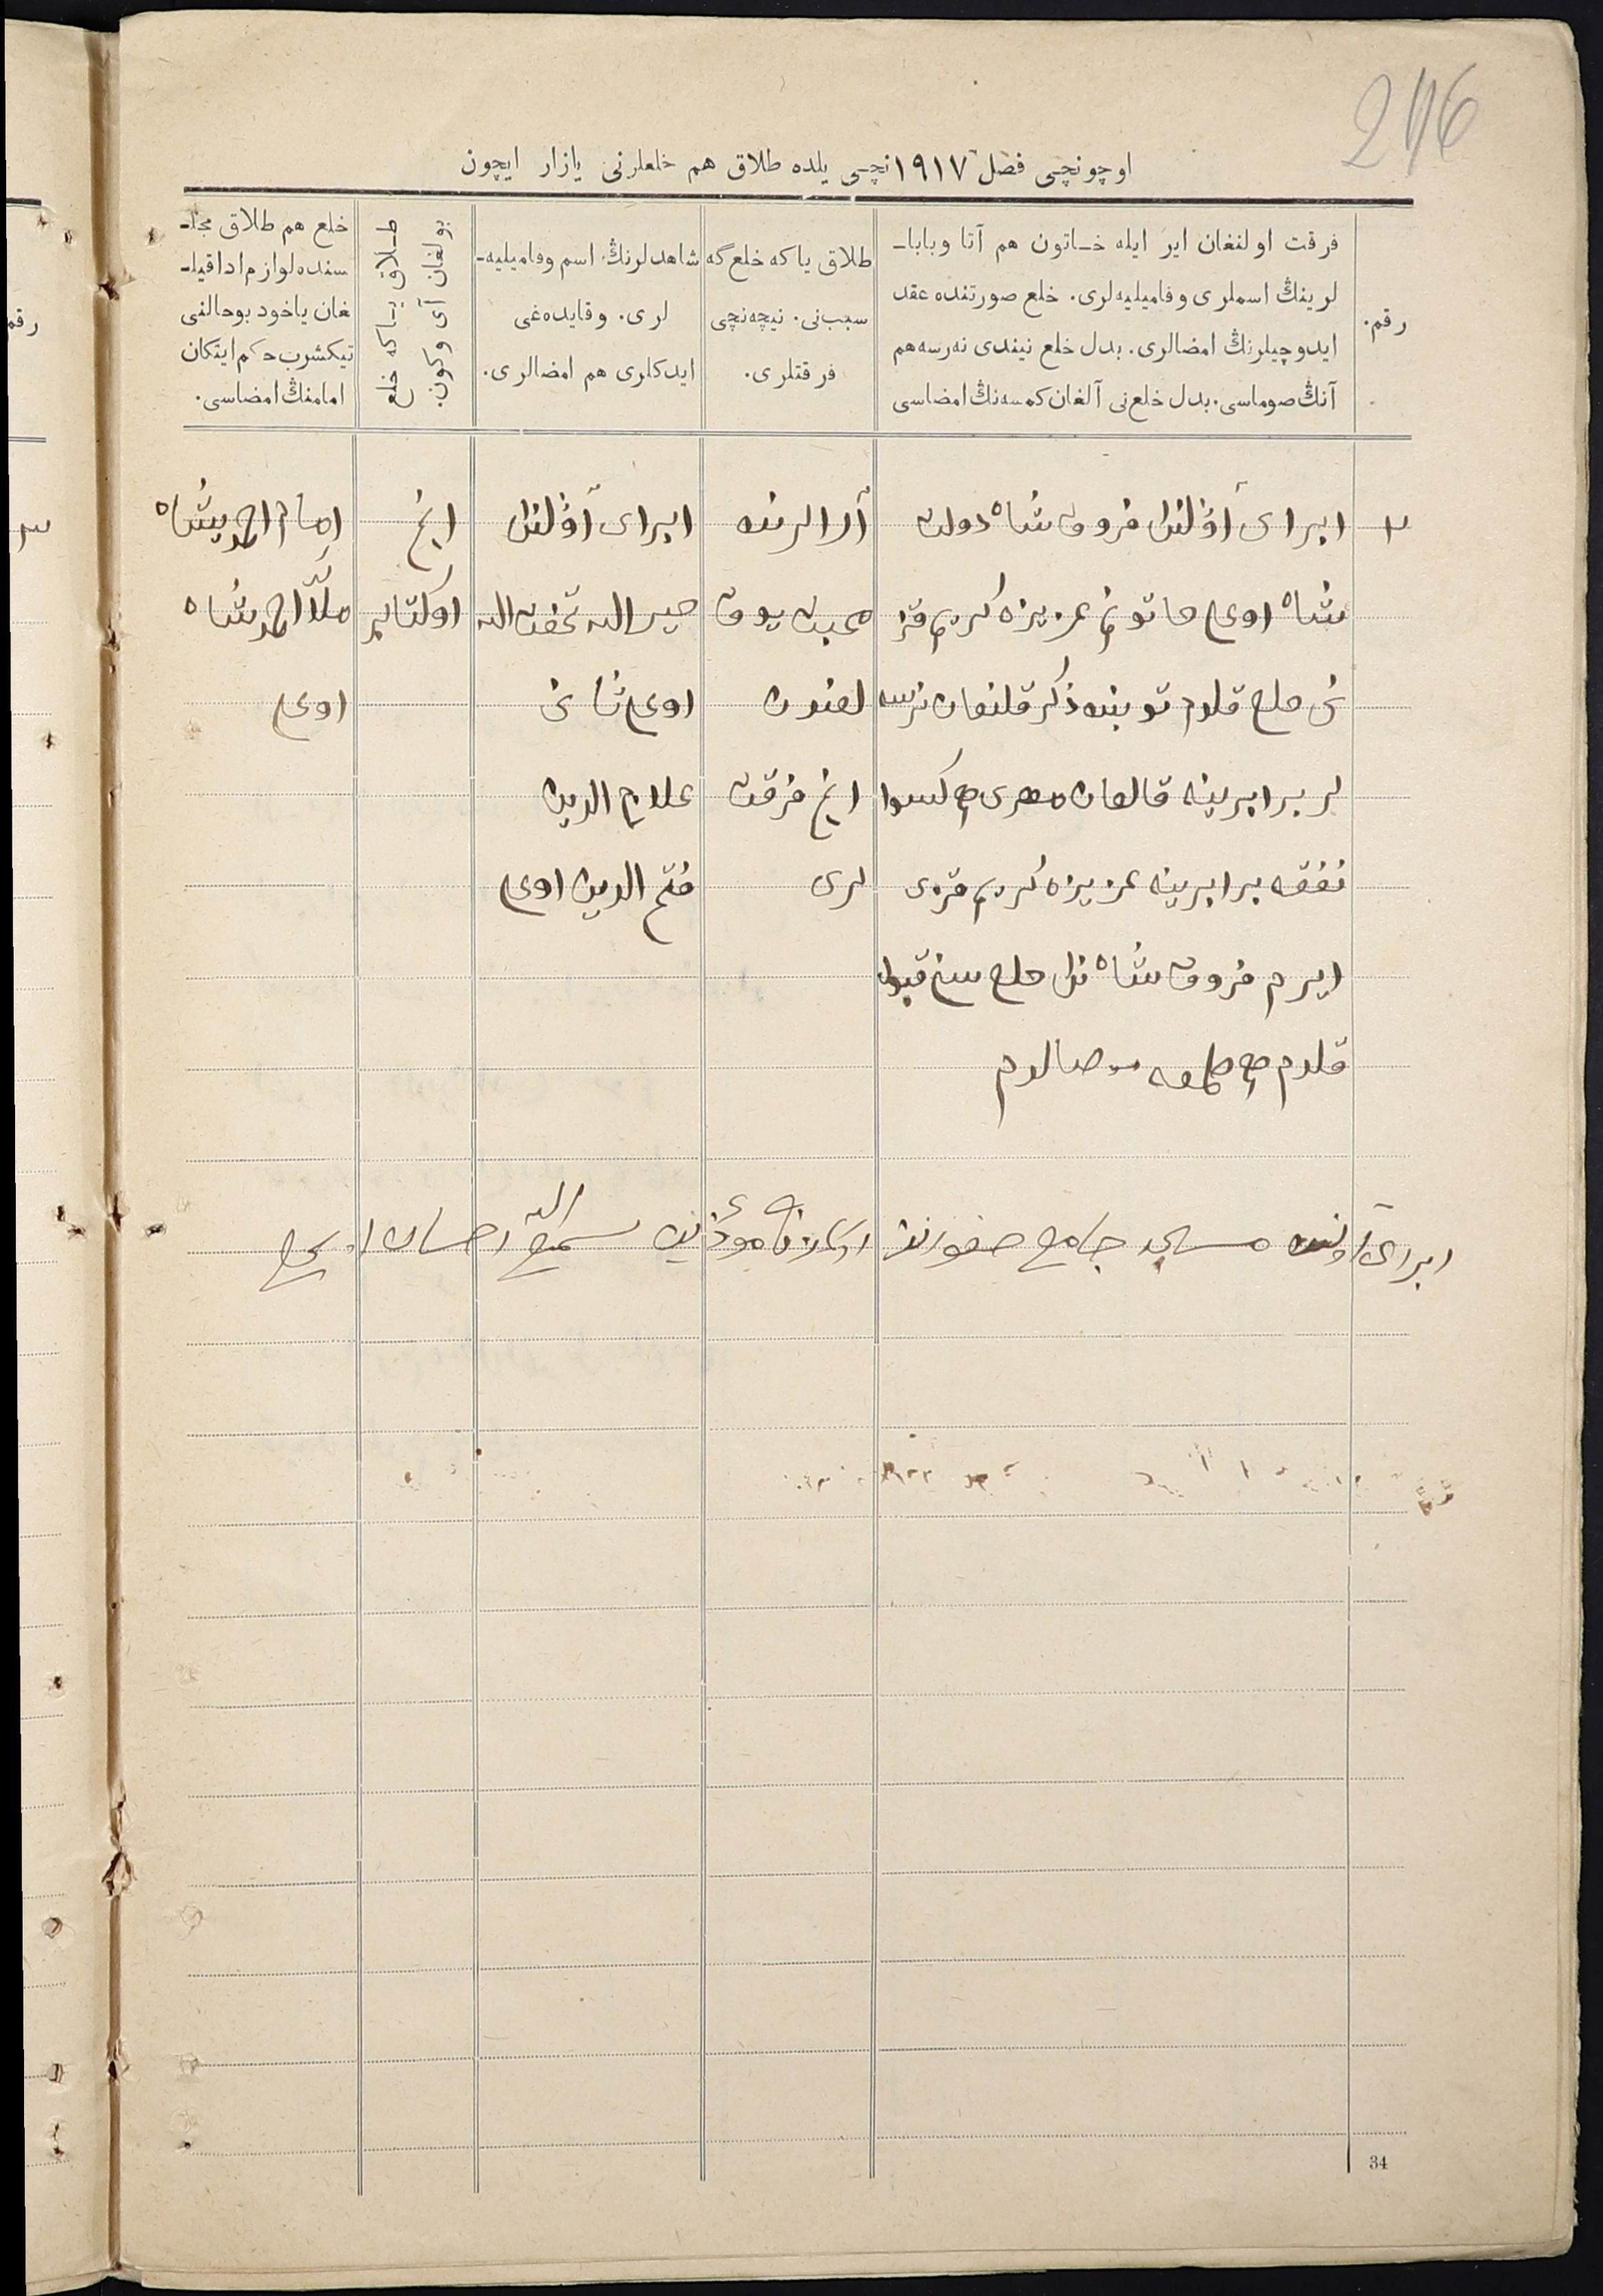 246
اوچونچی فصل ۱۹۱۷نچی یلده طلاق هم خلعلرنی یازار ایچون
رقم.
فرقت اولنغان ایر ایله خاتون هم آتا وبابا-
لرینڭ اسملری وفامیلیه‌لری. خلع صورتنده عقد
ایدوچیلرنڭ امضالری. بدل خلع نیندی نه‌رسه هم
آنڭ صوماسی. بدل خلع‌نی آلغان کمسه‌نڭ امضاسی
طلاق یا که خلع گه
سببنی. نیچه‌نچی
فرقتلری.
شاهدلرنڭ اسم وفامیلیه-
لری. وقایده‌غی
ایدکلری هم امضالری.
طلاق یا که خلع
بولغان آی وکون.
خلع هم طلاق مجل-
سنده لوازم ادا قیل-
غان یاخود بوحالنی
تیکشرب حکم ایتکان
امامنڭ امضاسی.
ابرای آولنڭ فروق شاه دولت
شاه اوغلی خاتونم عزیزه کریم قز
نی خلع قلدم توبنده ذکر قلنغان نرسه
لر برابرینه قالغان مهری هم کسوا
نفقه برابرینه عزیزه کریم قزی
ایرم فروق شاه نڭ خلع سن قبول
قلدم هم طمغه صالدم
آرالرنده
محبت یوق
لغندن
انچی فرقت
لری
ابرای آولنڭ
حبیب الله تحفت الله
اوغلی ثانی
علاج الدین
فتح الدین اوغلی
انچی
اوکتابر
امام احمدیشاه
ملا احمد شاه
اوغلی
ابرای آولنده مسجد جامع حضورنده مؤذن سمیع الله احسان
34